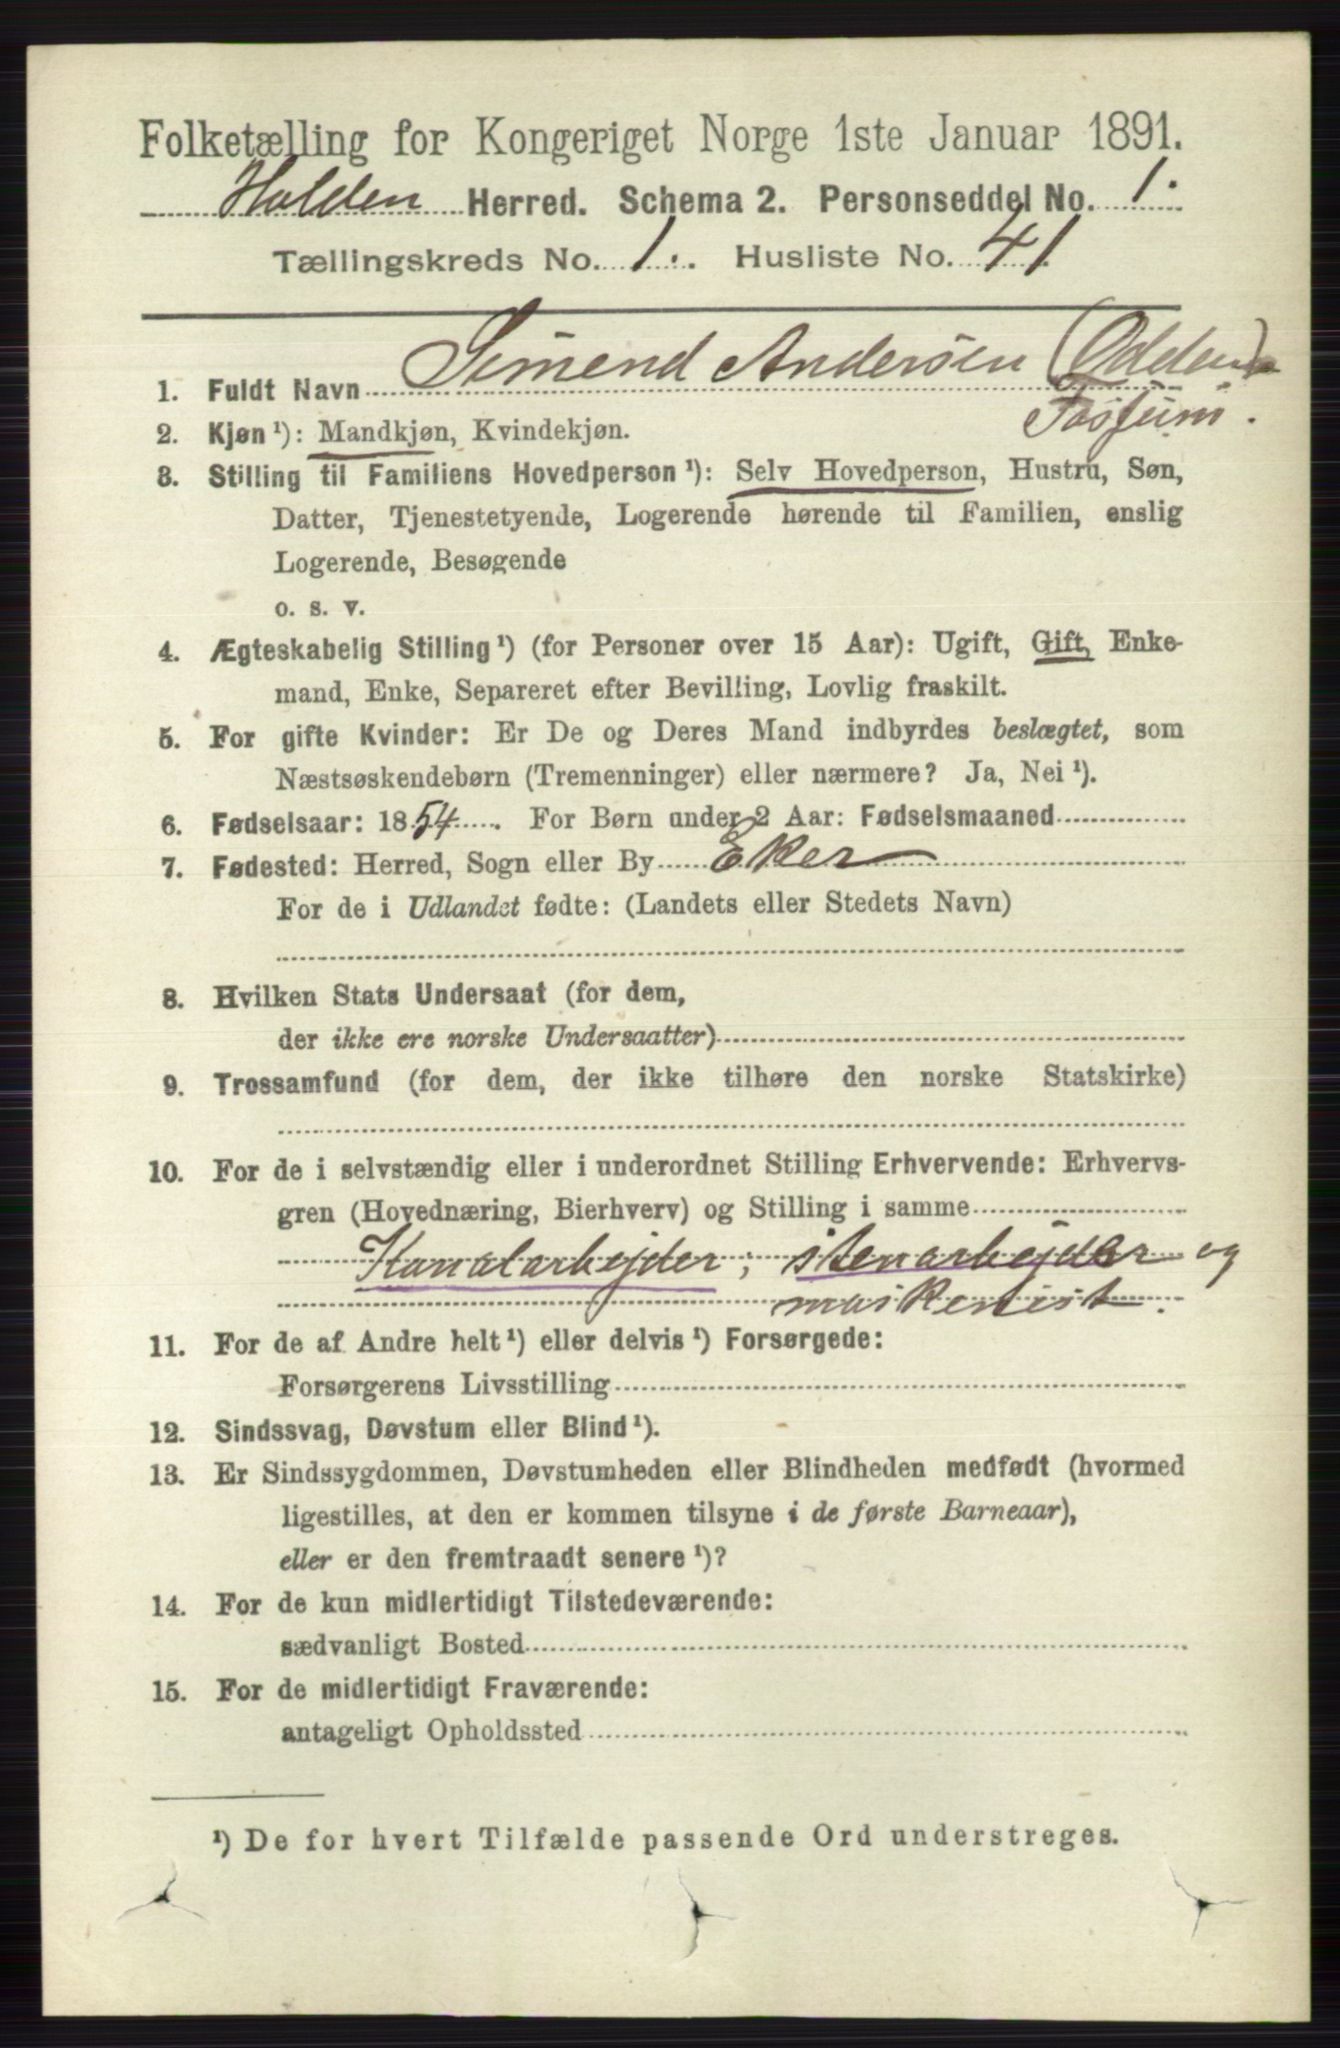 Folketælling for Kongeriget Norge 1ste Januar 1891.
Holden Herred. Schema 2. Personseddel No. 1.
Tællingskreds No. 1. Husliste No. 41
1. Fuldt Navn Simend Andersen (Odden)
Fosfum.
2. Kjøn ¹): Mandkjøn, Kvindekjøn.
3. Stilling til Familiens Hovedperson ¹): Selv Hovedperson, Hustru, Søn,
Datter, Tjenestetyende, Logerende hørende til Familien, enslig
Logerende, Besøgende
o. s. v.
4. Ægteskabelig Stilling ¹) (for Personer over 15 Aar): Ugift, Gift, Enke-
mand, Enke, Separeret efter Bevilling, Lovlig fraskilt.
5. For gifte Kvinder: Er De og Deres Mand indbyrdes beslægtet, som
Næstsøskendebørn (Tremenninger) eller nærmere? Ja, Nei ¹).
6. Fødselsaar: 1854. For Børn under 2 Aar: Fødselsmaaned
7. Fødested: Herred, Sogn eller By Eker
For de i Udlandet fødte: (Landets eller Stedets Navn)
8. Hvilken Stats Undersaat (for dem,
der ikke ere norske Undersaatter)
9. Trossamfund (for dem, der ikke tilhøre den norske Statskirke)
10. For de i selvstændig eller i underordnet Stilling Erhvervende: Erhvervs-
gren (Hovednæring, Bierhverv) og Stilling i samme
Kanalarbejder; stenarbejder og
maskenist.
11. For de af Andre helt ¹) eller delvis ¹) Forsørgede:
Forsørgerens Livsstilling
12. Sindssvag, Døvstum eller Blind ¹).
13. Er Sindssygdommen, Døvstumheden eller Blindheden medfødt (hvormed
ligestilles, at den er kommen tilsyne i de første Barneaar),
eller er den fremtraadt senere ¹)?
14. For de kun midlertidigt Tilstedeværende:
sædvanligt Bosted
15. For de midlertidigt Fraværende:
antageligt Opholdssted
¹) De for hvert Tilfælde passende Ord understreges.